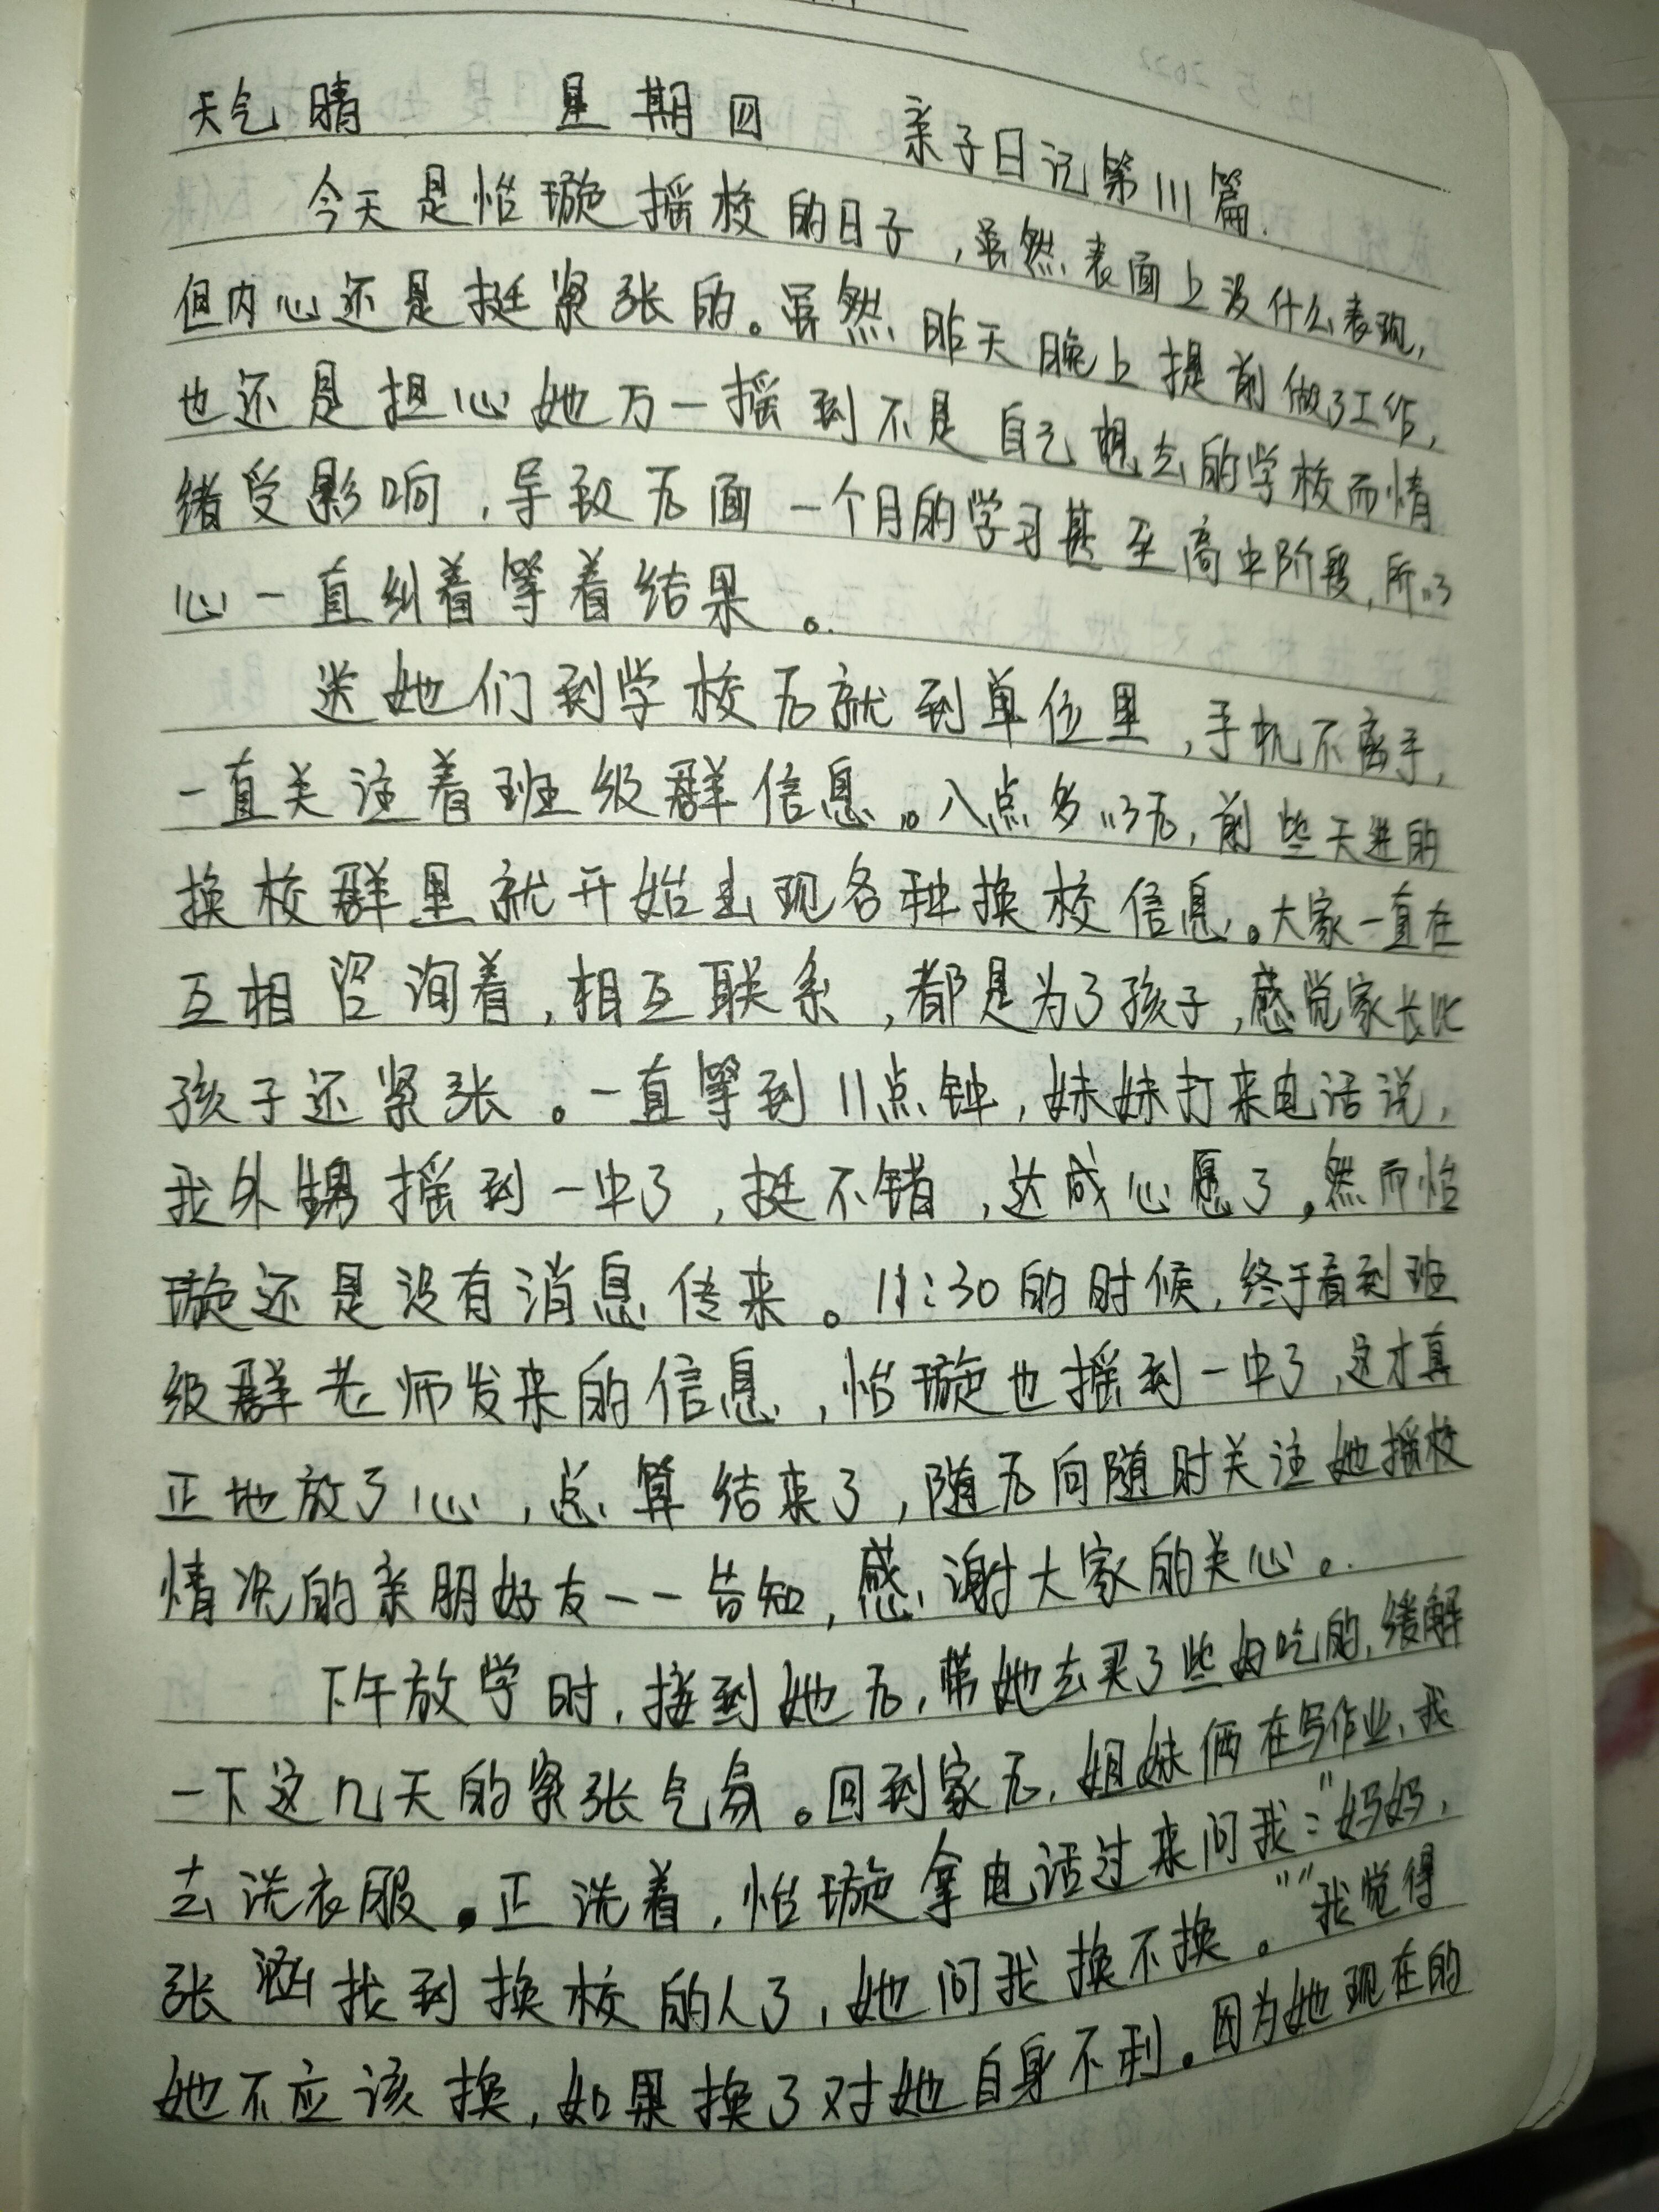 天气晴 星期四 亲子日记第111篇.
今天是怡璇摇校的日子,虽然表面上没什么表现,
但内心还是挺紧张的。虽然昨天晚上提前做了工作,
也还是担心她万一摇到不是自己想去的学校而情
绪受影响,导致后面一个月的学习甚至高中阶段,所以
心一直纠着等着结果。
送她们到学校后就到单位里,手机不离手,
一直关注着班级群信息。八点多以后,前些天进的
换校群里就开始出现各种换校信息。大家一直在
互相咨询着,相互联系,都是为了孩子,感觉家长比
孩子还紧张。一直等到11点钟,妹妹打来电话说,
我外甥摇到一中了,挺不错,达成心愿了,然而怡
璇还是没有消息传来。11:30的时候,终于看到班
级群老师发来的信息,怡璇也摇到一中了,这才真
正地放了心,总算结束了,随后向随时关注她摇校
情况的亲朋好友一一告知,感谢大家的关心。
下午放学时,接到她后,带她去买了些好吃的,缓解
一下这几天的紧张气氛。回到家后,姐妹俩在写作业,我
去洗衣服。正洗着,怡璇拿电话过来问我:"妈妈,
张涵找到换校的人了,她问我换不换。""我觉得
她不应该换,如果换了对她自身不利。因为她现在的